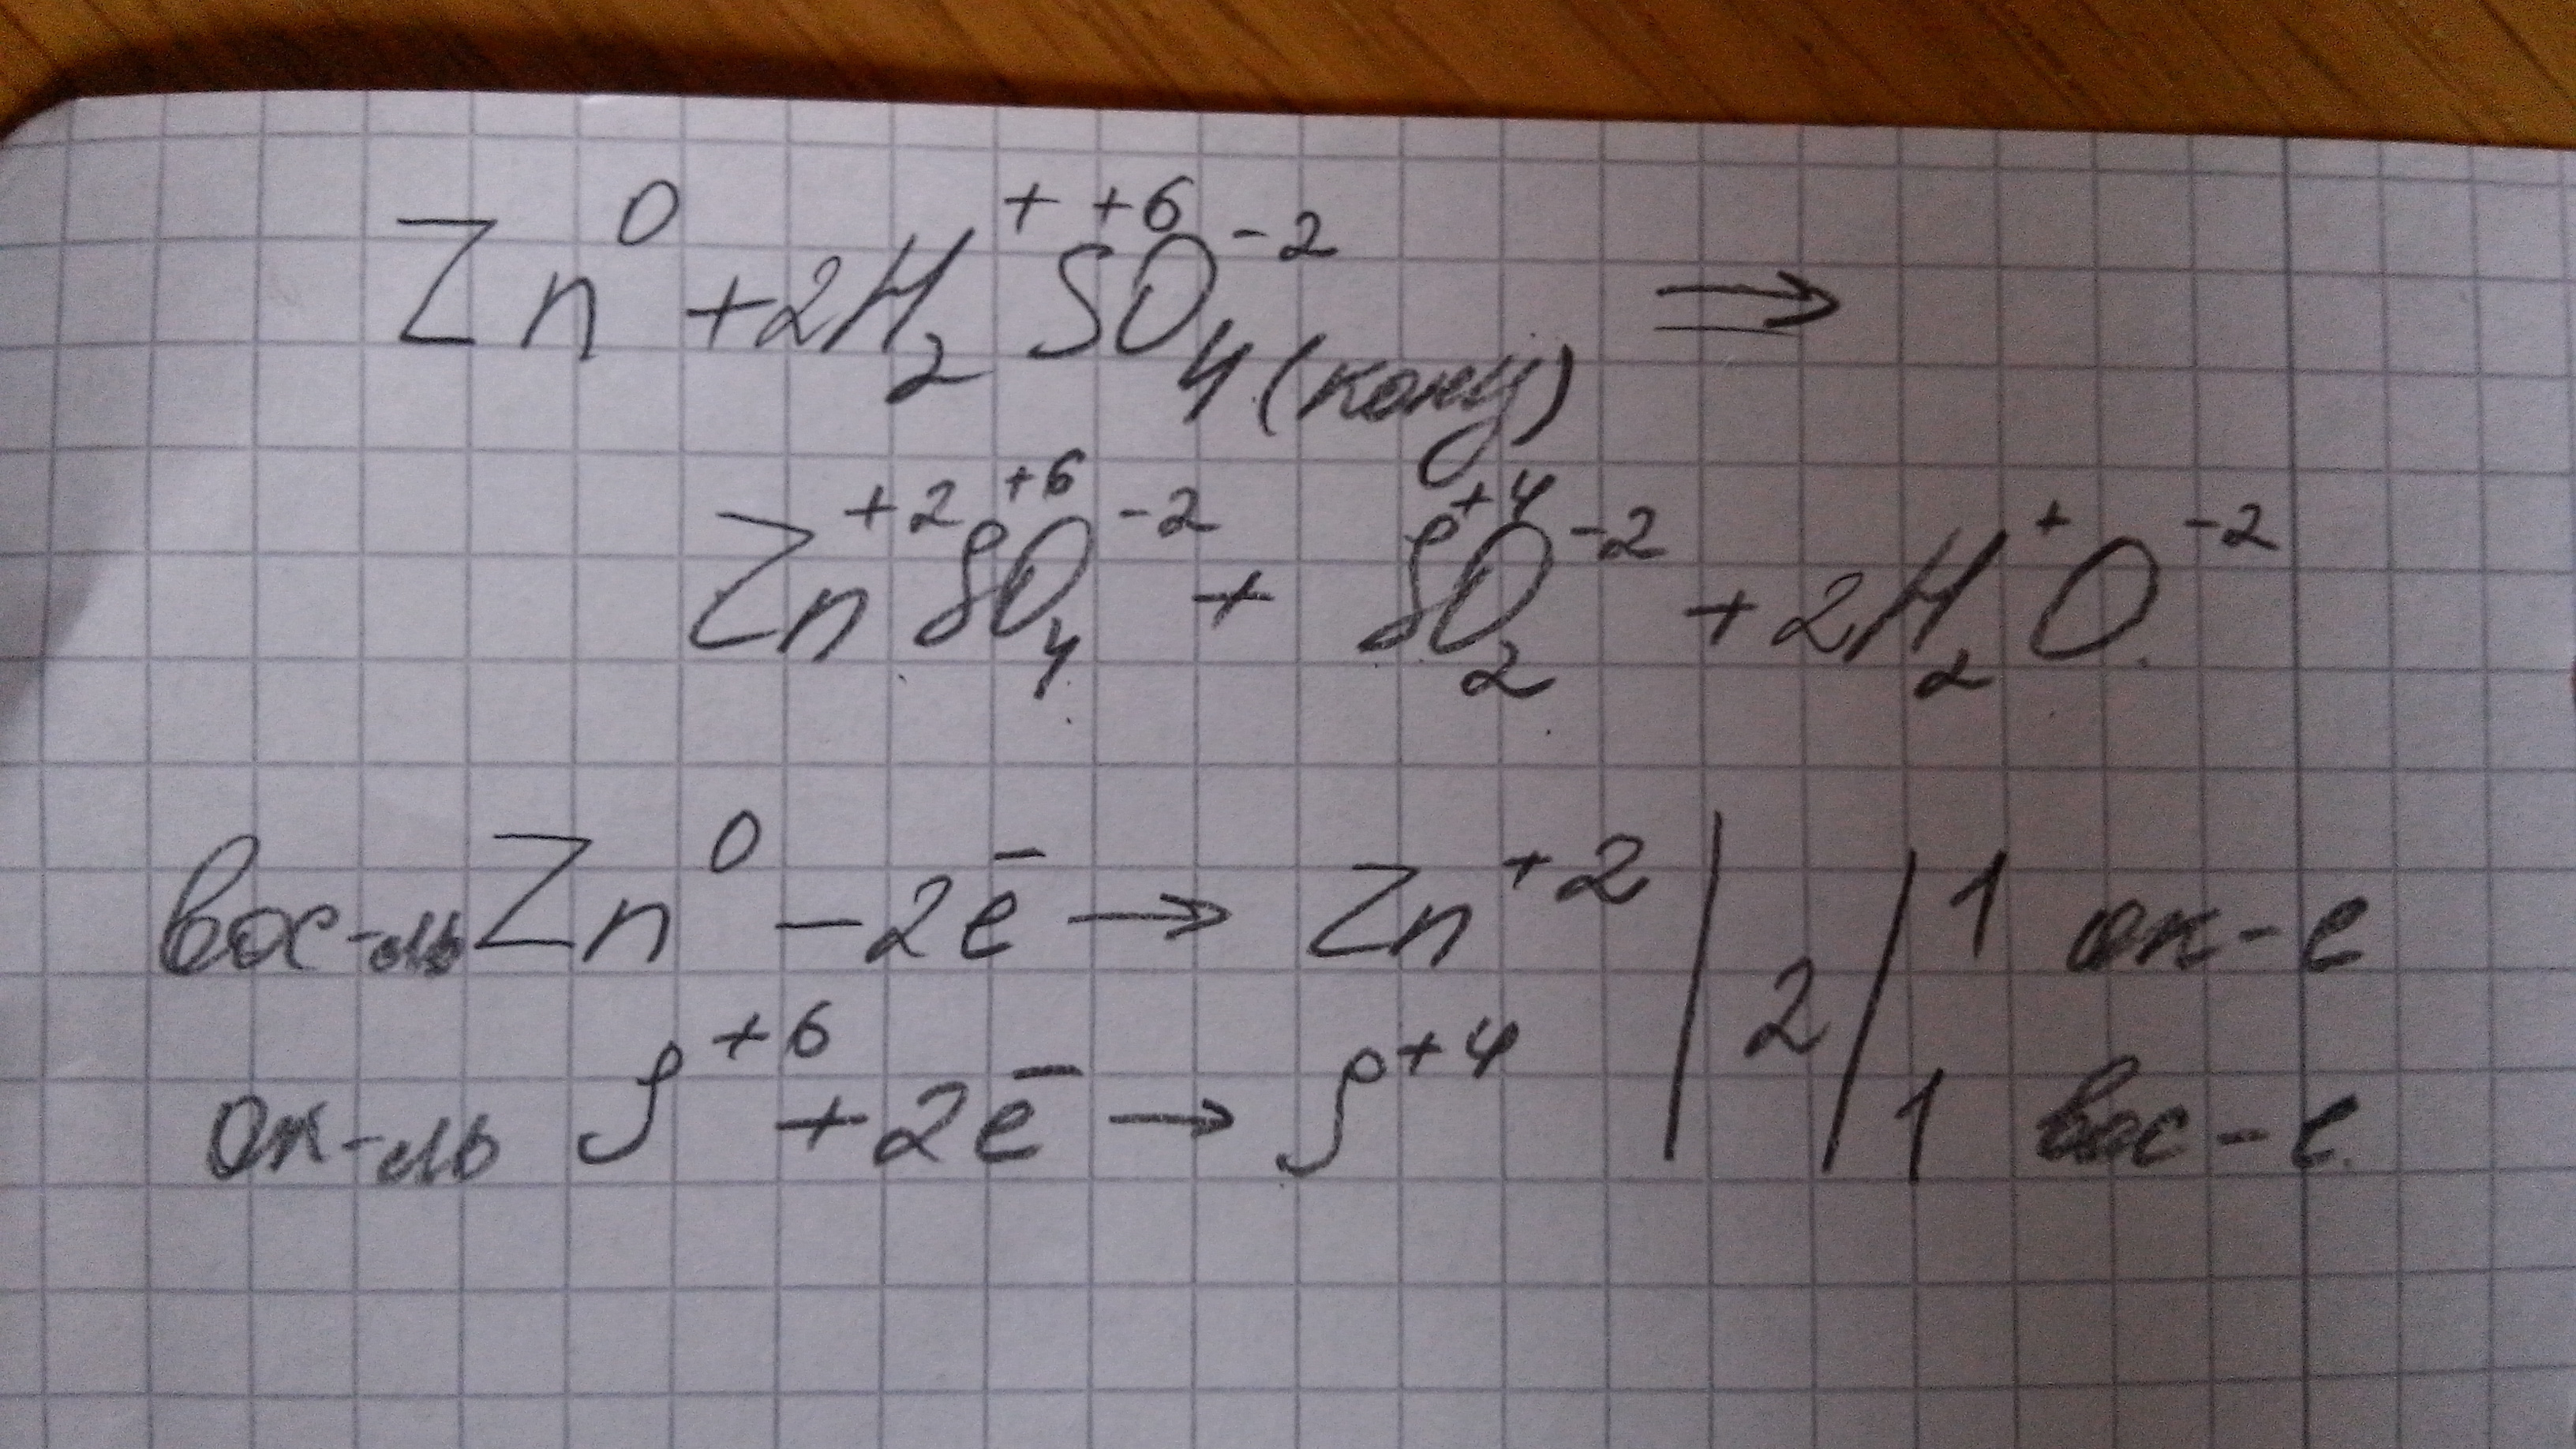 Zn⁰ + 2H₂⁺S⁺⁶O₄⁻² (конц) ⇒
Zn⁺²S⁺⁶O₄⁻² + S⁺⁴O₂⁻² + 2H₂⁺O⁻².
вос-ль Zn⁰ – 2ē → Zn⁺² | 2 | 1 ок-е
ок-ль S⁺⁶ + 2ē → S⁺⁴ | | 1 вос-е.